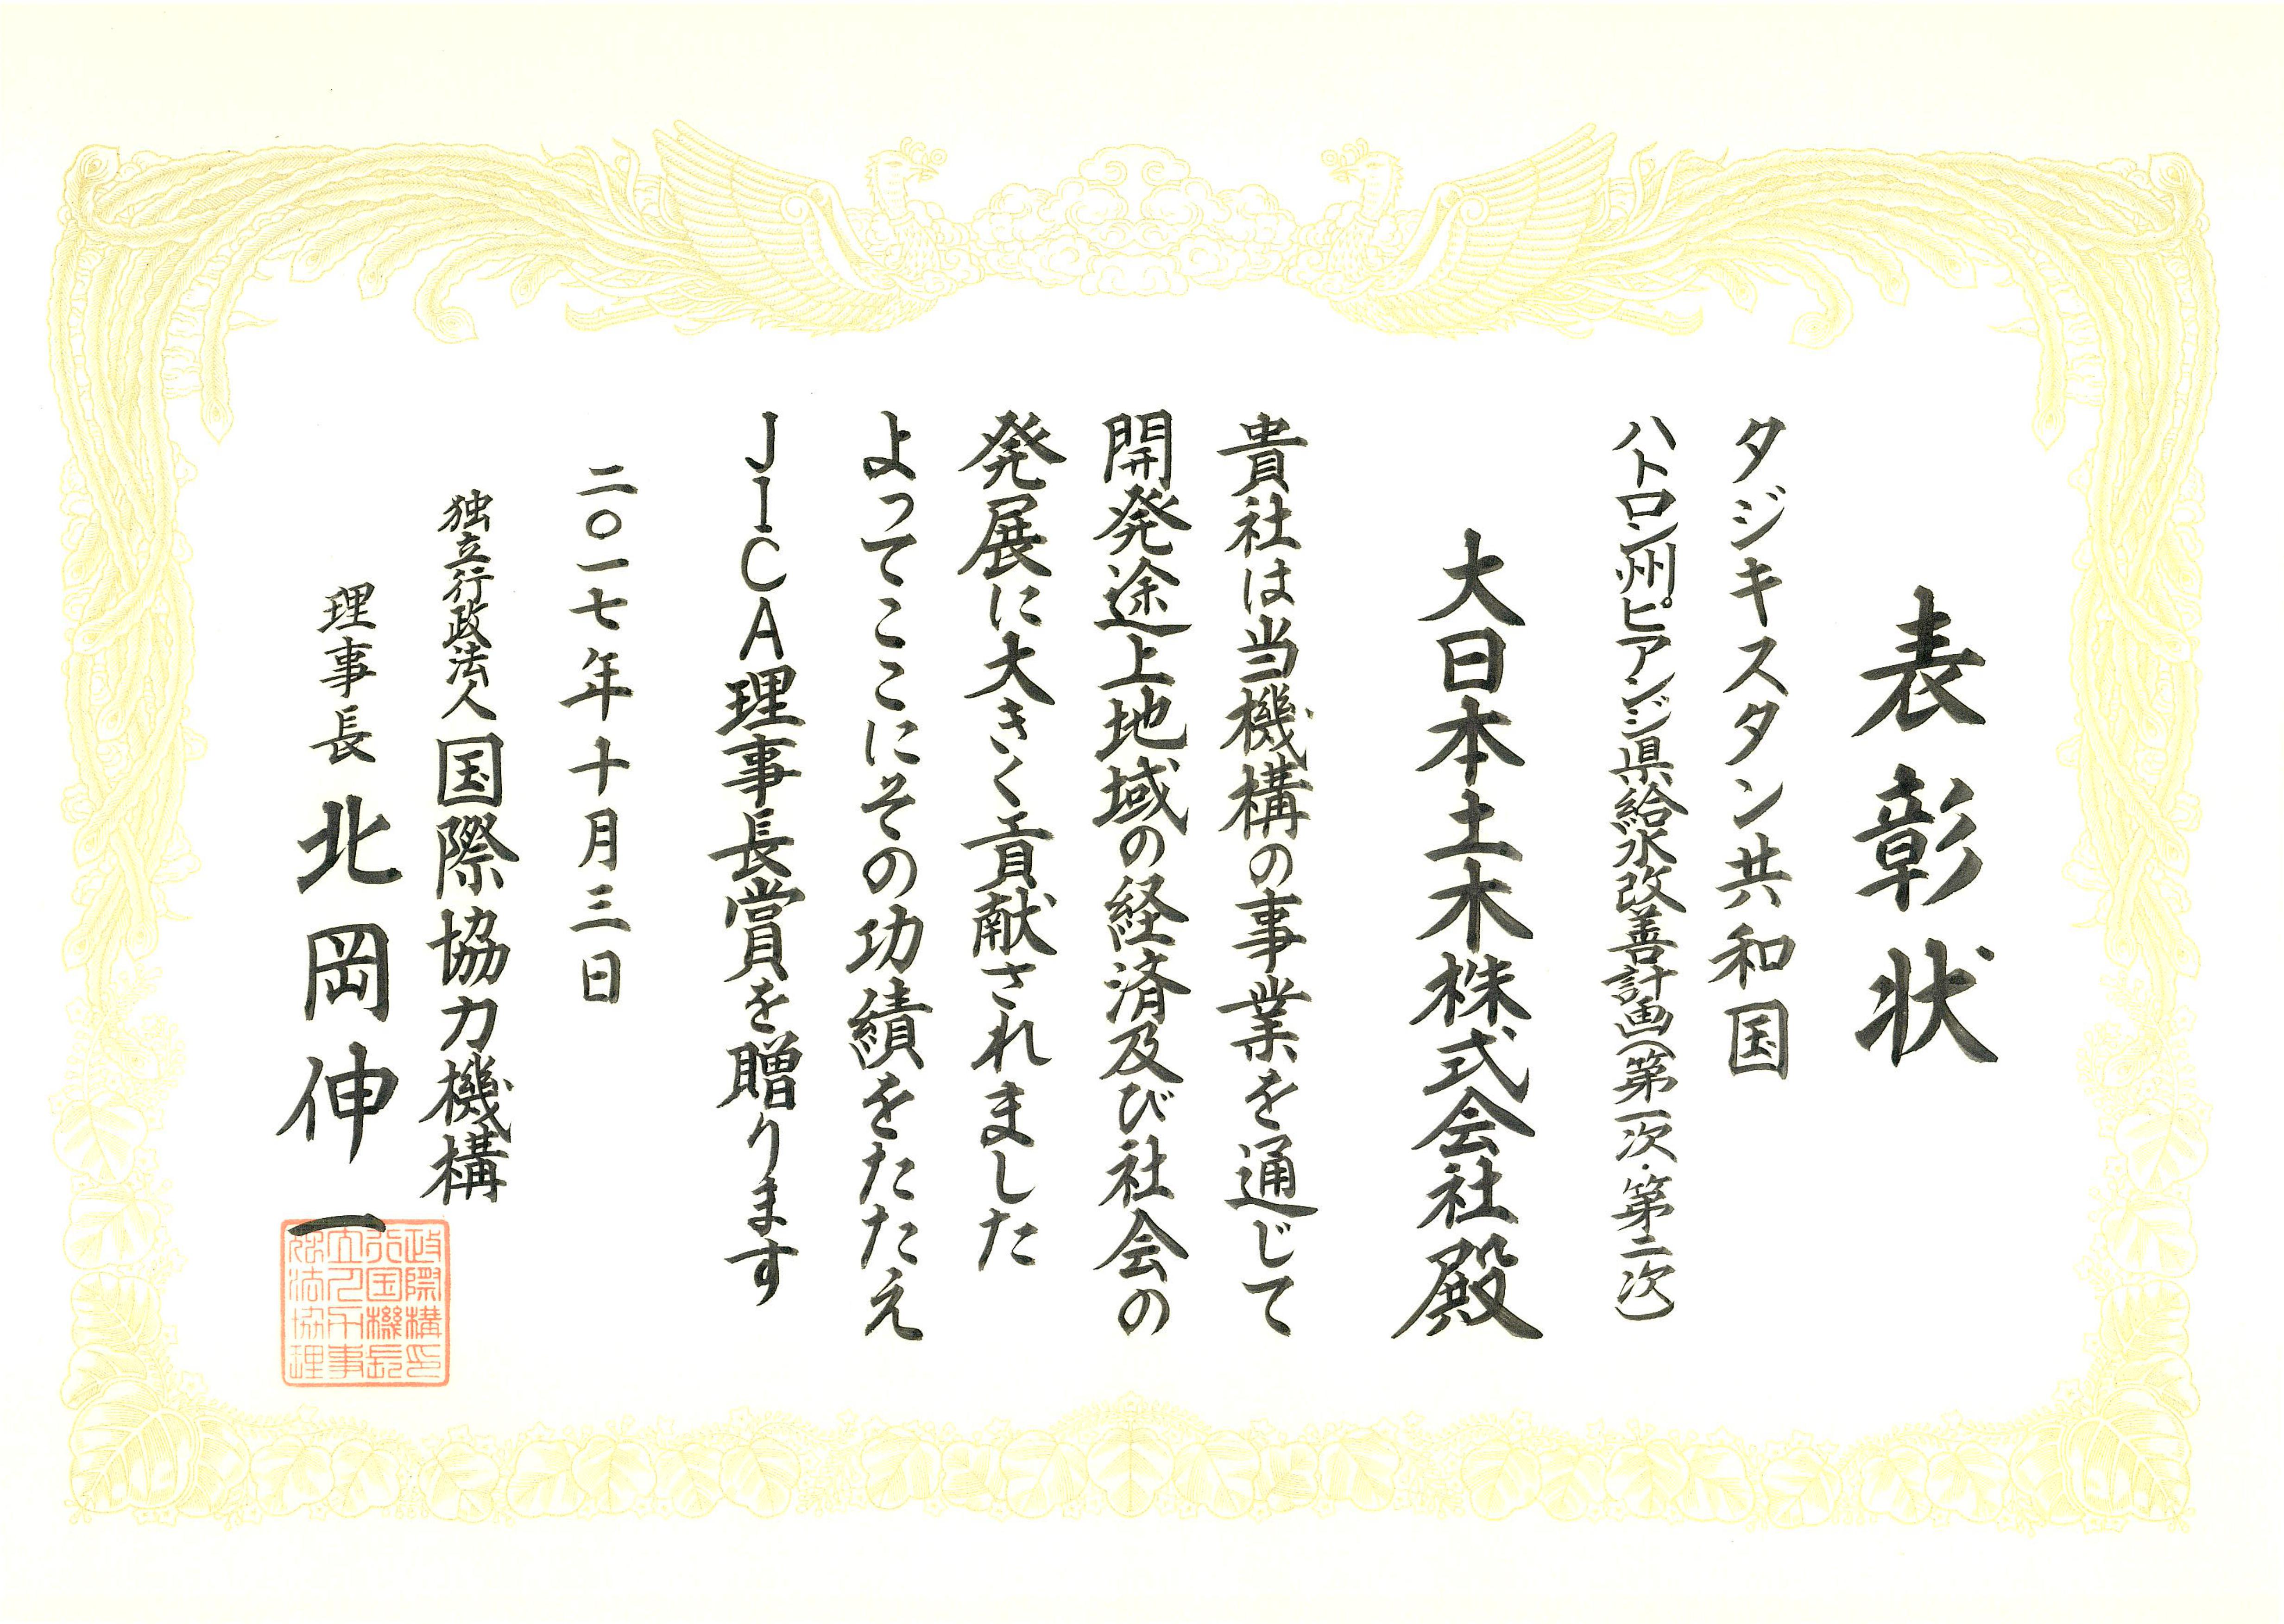 表彰状
タジキスタン共和国
ハトロン州ピアンジ県給水改善計画(第一次・第二次)
大日本土木株式会社殿
貴社は当機構の事業を通じて
開発途上地域の経済及び社会の
発展に大きく貢献されました
よってここにその功績をたたえ
JICA理事長賞を贈ります
二〇一七年十月三日
独立行政法人国際協力機構
理事長 北岡伸一